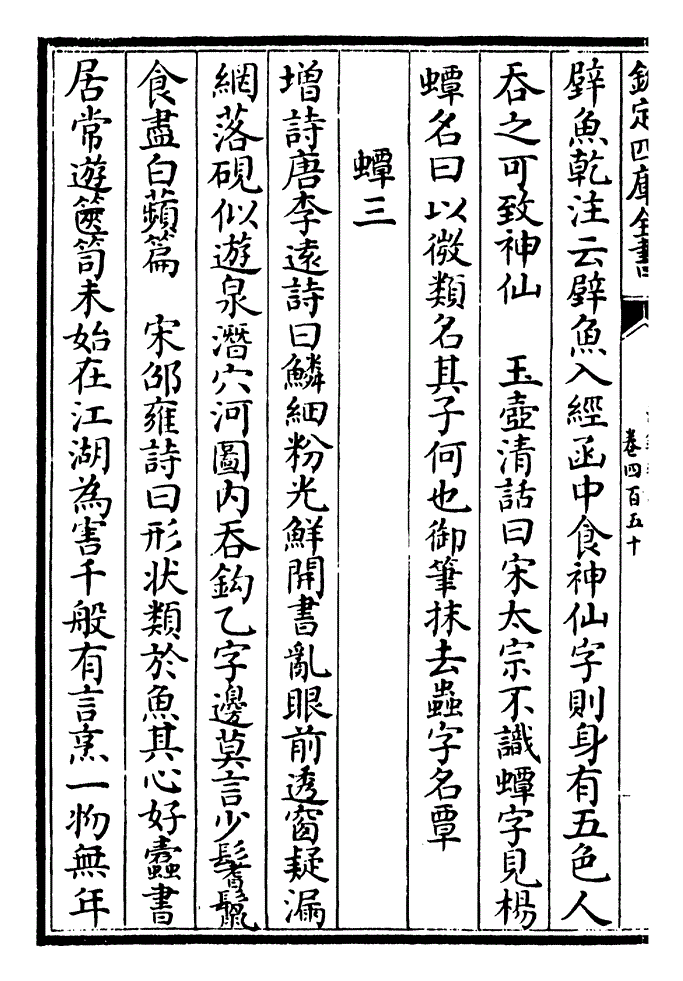 欽定四庫全書
卷四百五十
壁魚乾注云壁魚入經函中食神仙字則身有五色人
吞之可致神仙　玉壺清話曰宋太宗不識蟫字見楊
蟫名曰以微類名其子何也御筆抹去蟲字名覃
蟫三
增詩唐李遠詩曰鱗細粉光鮮開書亂眼前透窗疑漏
網落硯似遊泉潛穴河圖内吞鈎乙字邊莫言少鬐鬛
食盡白蘋篇　宋邵雍詩曰形状類於魚其心好蠧書
居常遊篋笥未始在江湖為害千般有言烹一物無年